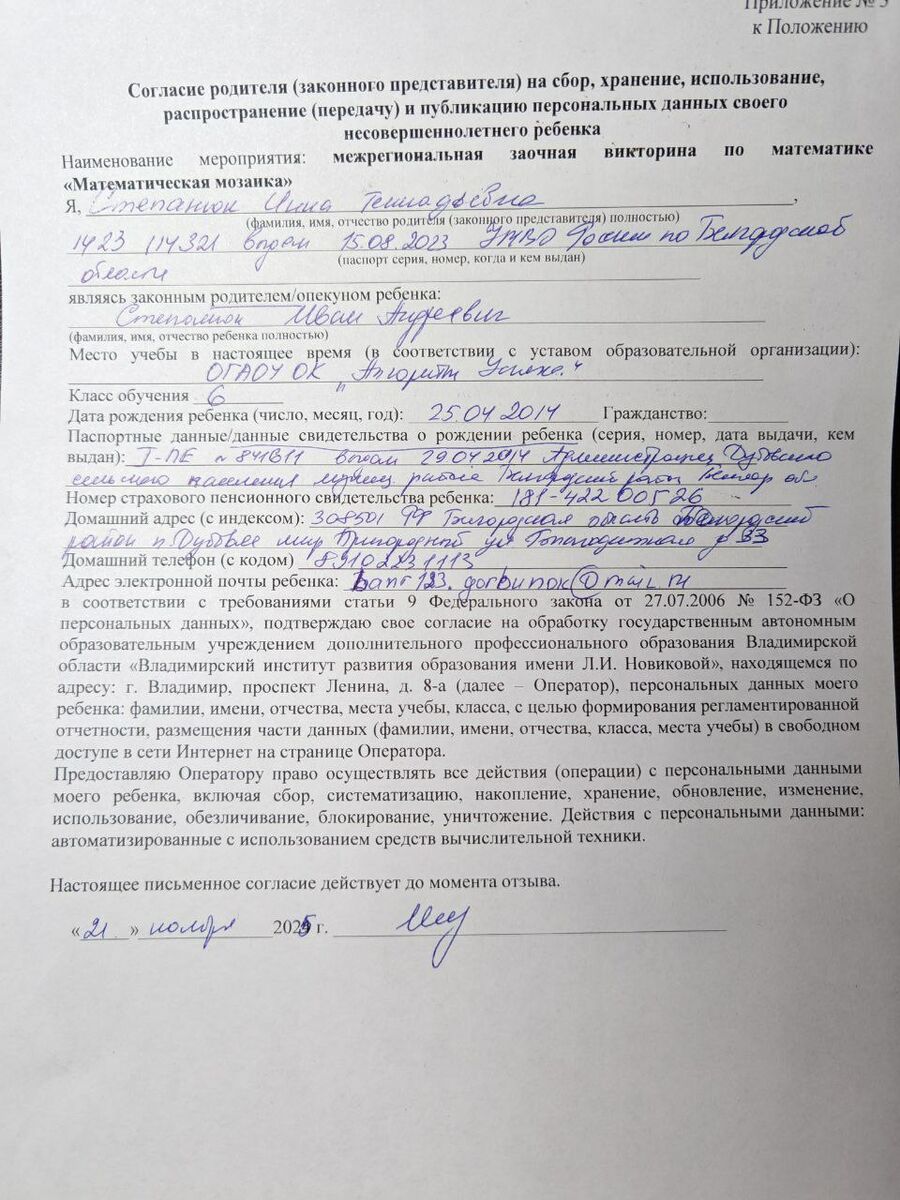 Приложение № 3
к Положению
Согласие родителя (законного представителя) на сбор, хранение, использование,
распространение (передачу) и публикацию персональных данных своего
несовершеннолетнего ребенка
Наименование мероприятия: межрегиональная заочная викторина по математике
«Математическая мозаика»
Я, Степанюк Инна Геннадьевна,
(фамилия, имя, отчество родителя (законного представителя) полностью)
1423 114321 выдан 15.08.2023 УМВД России по Белгородской
(паспорт серия, номер, когда и кем выдан)
области
являясь законным родителем/опекуном ребенка:
Степанюк Иван Андреевич
(фамилия, имя, отчество ребенка полностью)
Место учебы в настоящее время (в соответствии с уставом образовательной организации):
ОГАОУ ОК "Алгоритм Успеха"
Класс обучения 6
Дата рождения ребенка (число, месяц, год): 25.04.2014 Гражданство:
Паспортные данные/данные свидетельства о рождении ребенка (серия, номер, дата выдачи, кем
выдан): I-ЛЕ № 841811 выдан 29.04.2014 Администрац Дубовского
сельского поселения муницип. района Белгородский район Белгор обл.
Номер страхового пенсионного свидетельства ребенка: 181-422 005 26
Домашний адрес (с индексом): 308501 РФ Белгородская область Белгородский
район п. Дубовое мкр Пригородный ул д 33
Домашний телефон (с кодом) 89102231113
Адрес электронной почты ребенка: @mail.ru
в соответствии с требованиями статьи 9 Федерального закона от 27.07.2006 № 152-ФЗ «О
персональных данных», подтверждаю свое согласие на обработку государственным автономным
образовательным учреждением дополнительного профессионального образования Владимирской
области «Владимирский институт развития образования имени Л.И. Новиковой», находящемся по
адресу: г. Владимир, проспект Ленина, д. 8-а (далее – Оператор), персональных данных моего
ребенка: фамилии, имени, отчества, места учебы, класса, с целью формирования регламентированной
отчетности, размещения части данных (фамилии, имени, отчества, класса, места учебы) в свободном
доступе в сети Интернет на странице Оператора.
Предоставляю Оператору право осуществлять все действия (операции) с персональными данными
моего ребенка, включая сбор, систематизацию, накопление, хранение, обновление, изменение,
использование, обезличивание, блокирование, уничтожение. Действия с персональными данными:
автоматизированные с использованием средств вычислительной техники.
Настоящее письменное согласие действует до момента отзыва.
«21» ноября 2025 г.